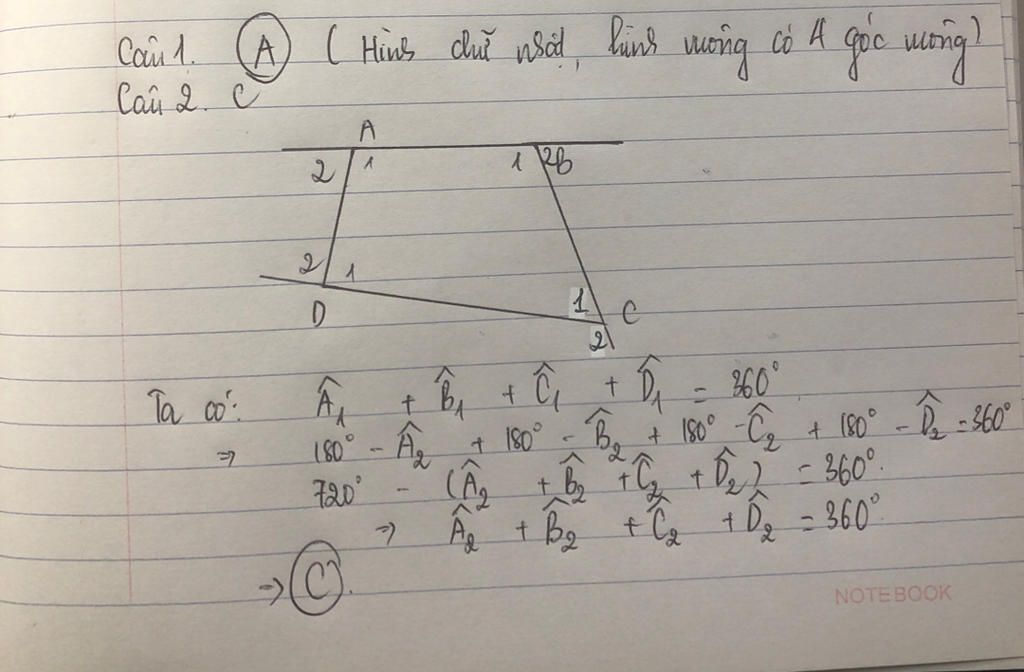 Câu 1. A (Hình chữ nhật, hình vuông có 4 góc vuông)
Câu 2. C
A
2 1 1 2B
2 1 1
D C
2
Ta có: Â₁ + B̂₁ + Ĉ₁ + D̂₁ = 360°
⇒ 180° - Â₂ + 180° - B̂₂ + 180° - Ĉ₂ + 180° - D̂₂ = 360°
720° - (Â₂ + B̂₂ + Ĉ₂ + D̂₂) = 360°.
⇒ Â₂ + B̂₂ + Ĉ₂ + D̂₂ = 360°.
⇒ C.
NOTEBOOK